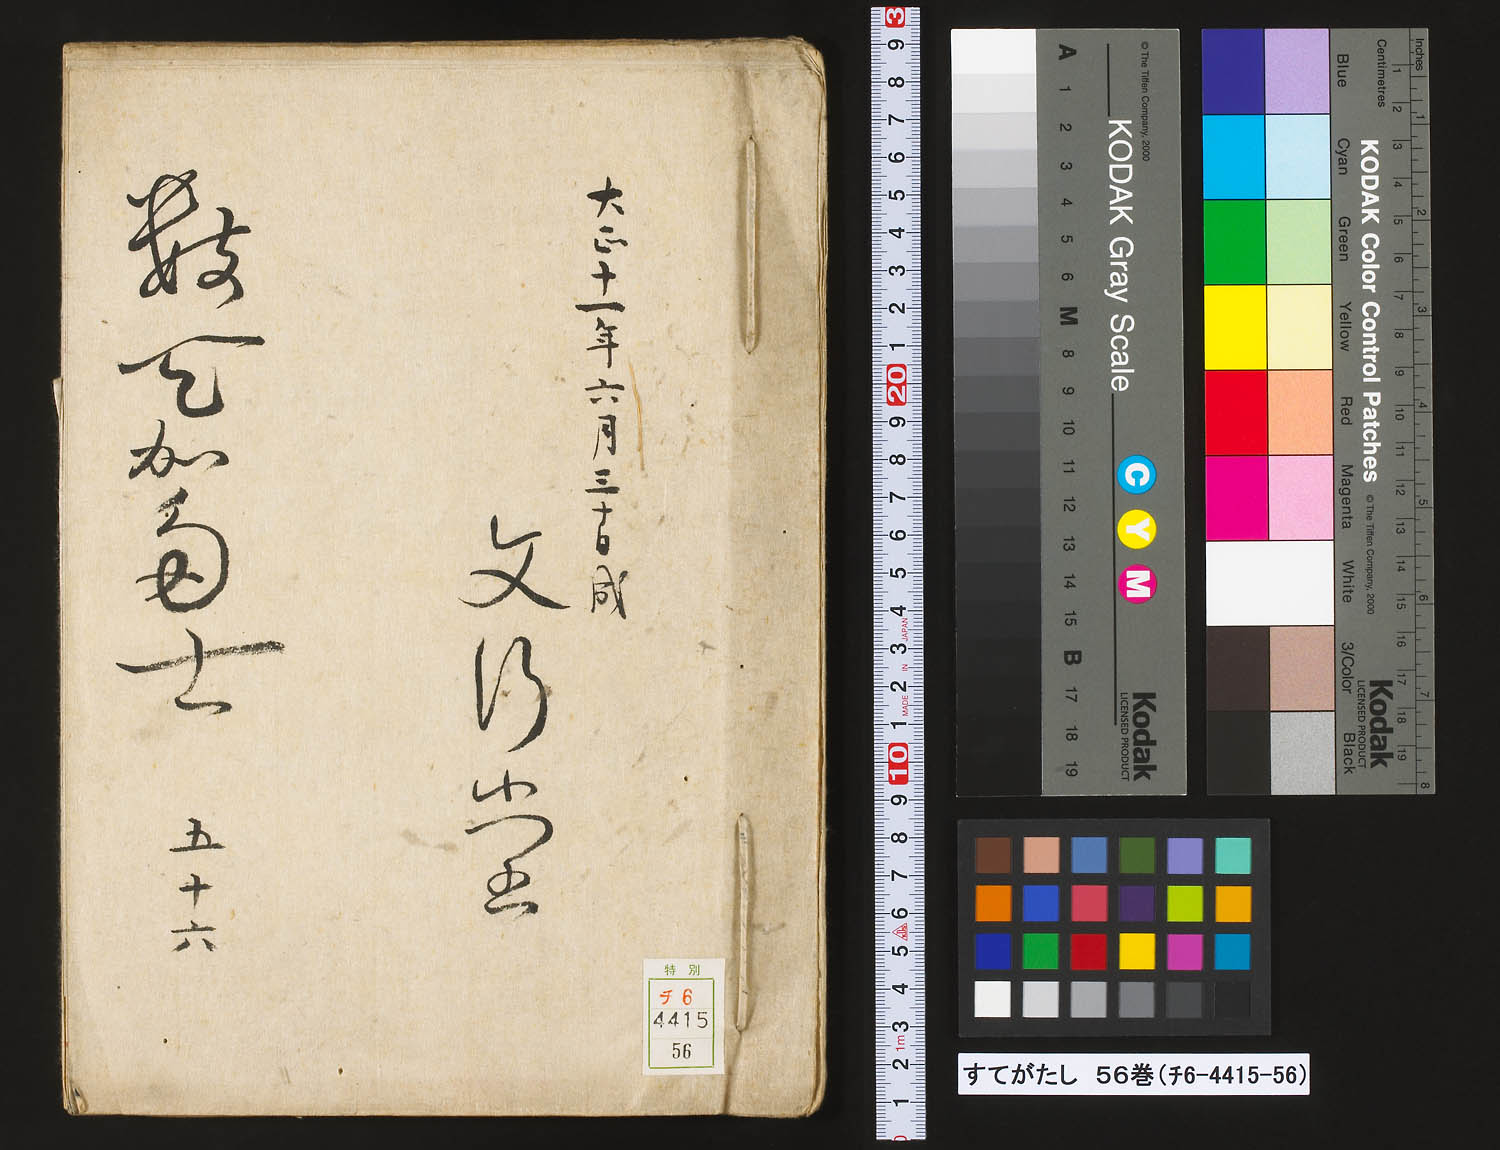 大正十一年六月三十日成
文行堂
数天加多士
五十六
特別
チ6
4415
56
3
9
8
7
6
5
4
3
2
1
20
9
8
7
6
5
4
3
2
1
10
9
8
7
6
5
4
3
2
1
MADE IN JAPAN
1m
KODAK Gray Scale
© The Tiffen Company, 2000
A 1 2 3 4 5 6 M 8 9 10 11 12 13 14 15 B 17 18 19
C Y M
Kodak
LICENSED PRODUCT
KODAK Color Control Patches
© The Tiffen Company, 2000
Inches
1 2 3 4 5 6 7 8
Centimetres
1 2 3 4 5 6 7 8 9 10 11 12 13 14 15 16 17 18 19
Blue Cyan Green Yellow Red Magenta White 3/Color Black
Kodak
LICENSED PRODUCT
すてがたし 56巻(チ6-4415-56)